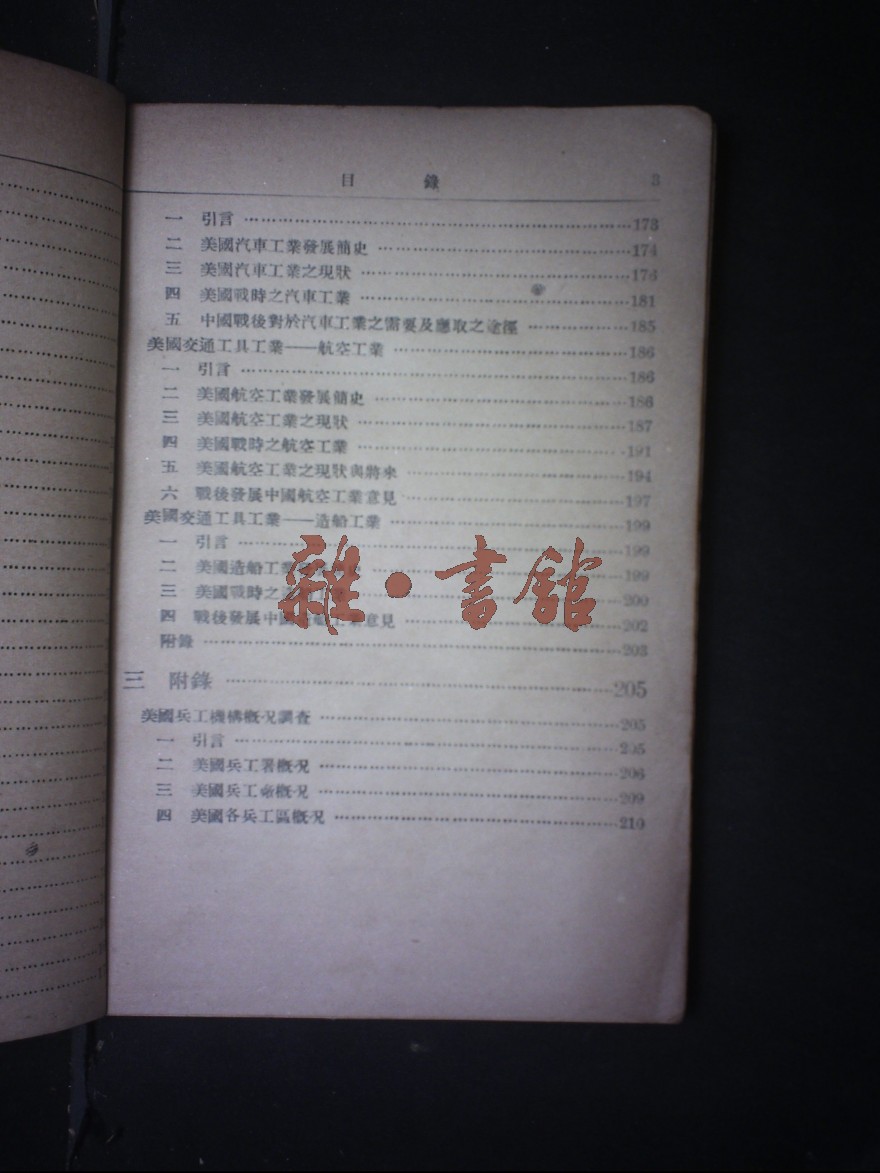 目錄 3
一 引言 173
二 美國汽車工業發展簡史 174
三 美國汽車工業之現狀 176
四 美國戰時之汽車工業 181
五 中國戰後對於汽車工業之需要及應取之途徑 185
美國交通工具工業——航空工業 186
一 引言 186
二 美國航空工業發展簡史 186
三 美國航空工業之現狀 187
四 美國戰時之航空工業 191
五 美國航空工業之現狀與將來 194
六 戰後發展中國航空工業意見 197
美國交通工具工業——造船工業 199
一 引言 199
二 美國造船工業 史 199
三 美國戰時之 200
四 戰後發展中國造船工業意見 202
附錄 203
三 附錄 205
美國兵工機構概況調查 205
一 引言 205
二 美國兵工署概況 206
三 美國兵工廠概況 209
四 美國各兵工區概況 210
雜·書館